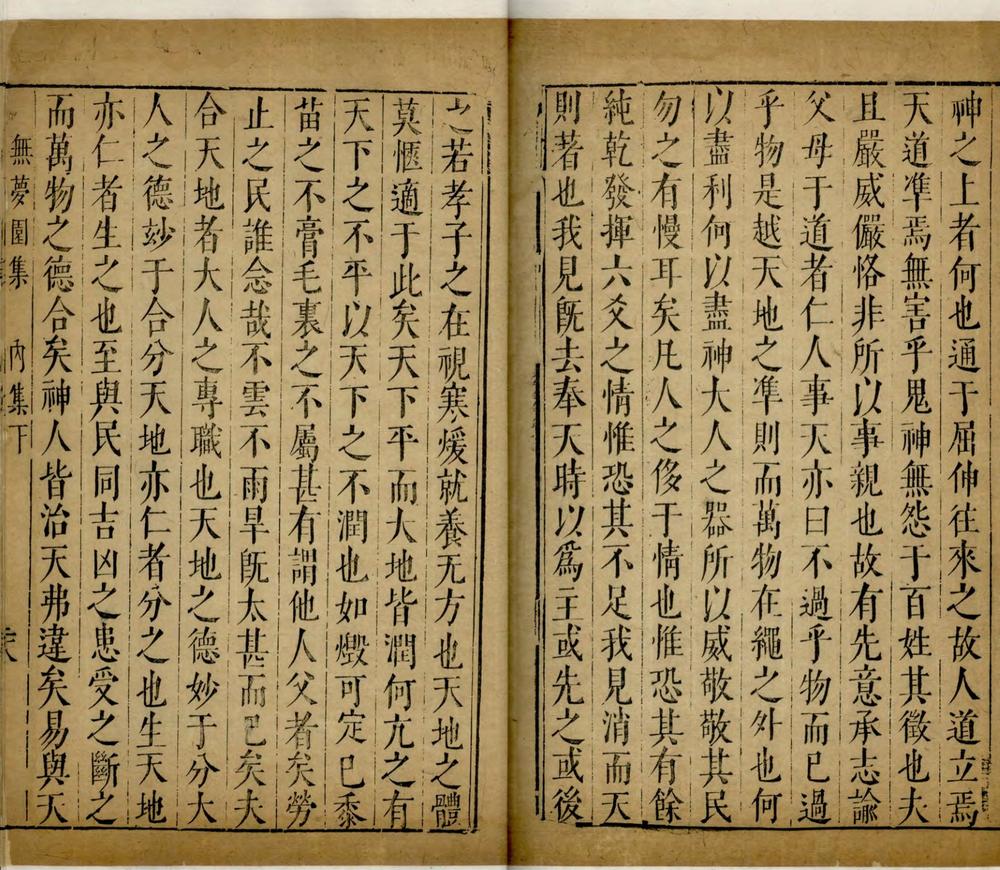 神之上者何也通于屈伸往來之故人道立焉
天道準焉無害乎鬼神無怨于百姓其徵也夫
且嚴威儼恪非所以事親也故有先意承志諭
父母于道者仁人事天亦曰不過乎物而已過
乎物是越天地之準則而萬物在繩之外也何
以盡利何以盡神大人之器所以威敬敬其民
勿之有慢耳矣凡人之侈于情也惟恐其有餘
純乾發揮六爻之情惟恐其不足我見消而天
則著也我見旣去奉天時以爲主或先之或後
之若孝子之在視寒煖就養无方也天地之體
莫愜適于此矣天下平而大地皆潤何亢之有
天下之不平以天下之不潤也如燬可定已黍
苗之不膏毛裏之不屬甚有謂他人父者矣勞
止之民誰念哉不雲不雨旱旣太甚而已矣夫
合天地者大人之專職也天地之德妙于分大
人之德玅于合分天地亦仁者分之也生天地
亦仁者生之也至與民同吉凶之患受之斷之
而萬物之德合矣神人皆治天弗違矣易與天
無夢園集 內集下